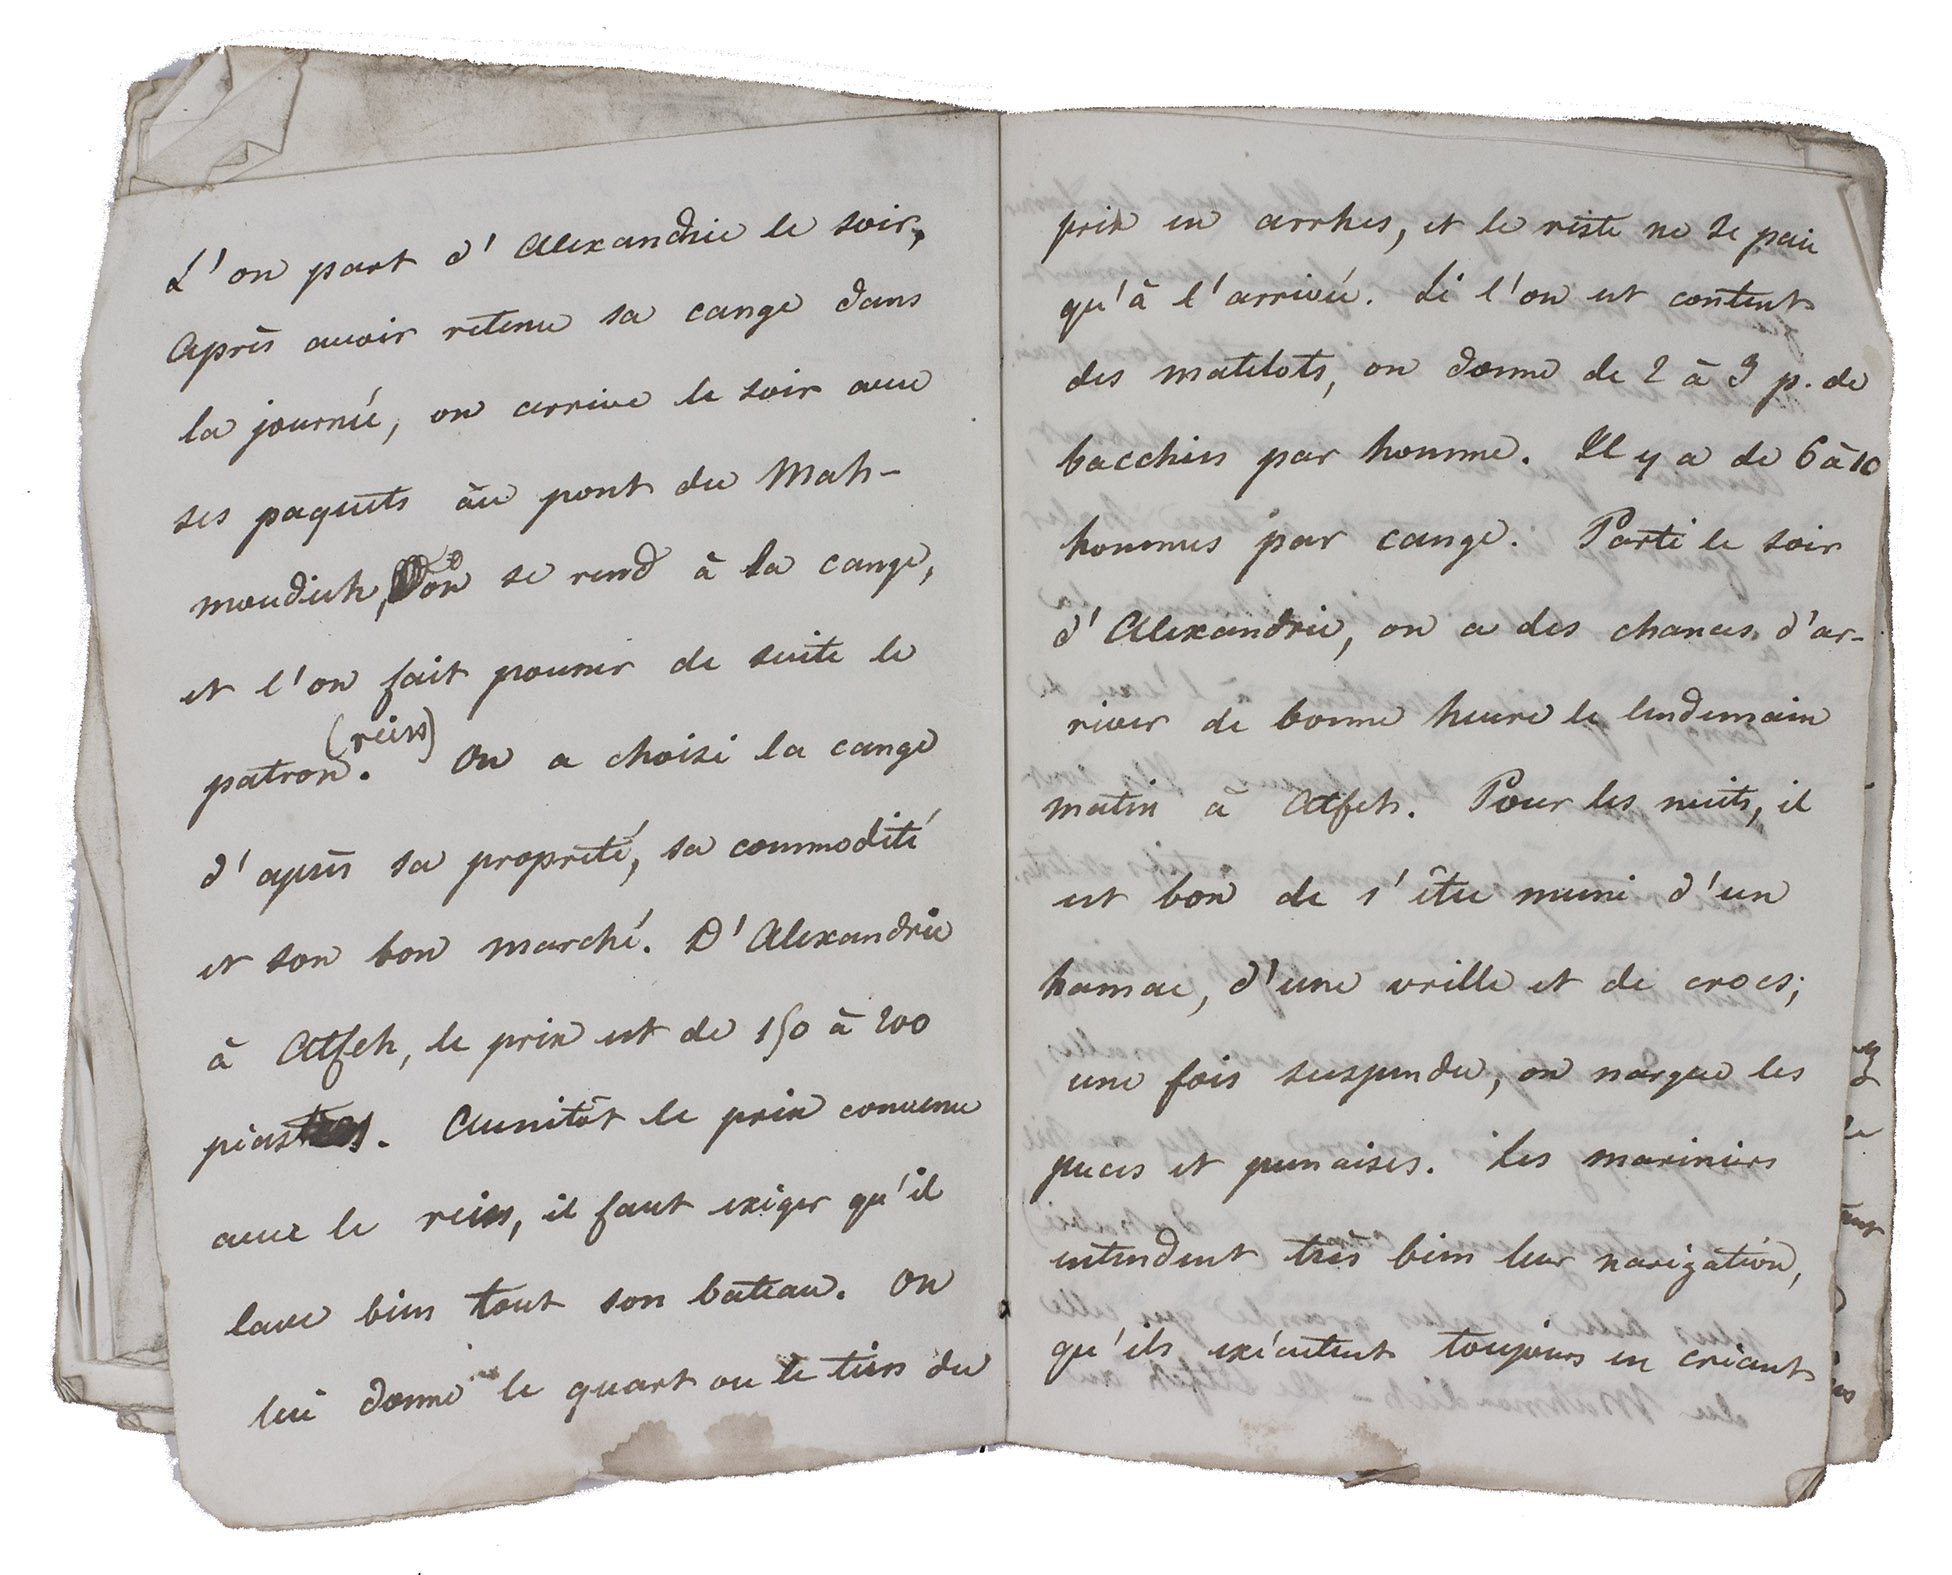 L'on part d'Alexandrie le soir,
Après avoir retenu sa cange dans
la journée, on arrive le soir avec
ses paquets au pont du Mah-
moudieh, on se rend à la cange,
et l'on fait pousser de suite le
(reiss)
patron. On a choisi la cange
d'après sa propreté, sa commodité
et son bon marché. D'Alexandrie
à Atfeh, le prix est de 150 à 200
piastres. Aussitôt le prix convenu
avec le reiss, il faut exiger qu'il
lave bien tout son bateau. On
lui donne le quart ou le tiers du
prix en arrhes, et le reste ne se paie
qu'à l'arrivée. Si l'on est content
des matelots, on donne de 2 à 3 p. de
bacchiss par homme. Il y a de 6 à 10
hommes par cange. Parti le soir
d'Alexandrie, on a des chances d'ar-
river de bonne heure le lendemain
matin à Atfeh. Pour les nuits, il
est bon de s'être muni d'un
hamac, d'une vrille et de crocs;
une fois suspendu, on nargue les
puces et punaises. Les mariniers
entendent très bien leur navigation,
qu'ils exécutent toujours en criant